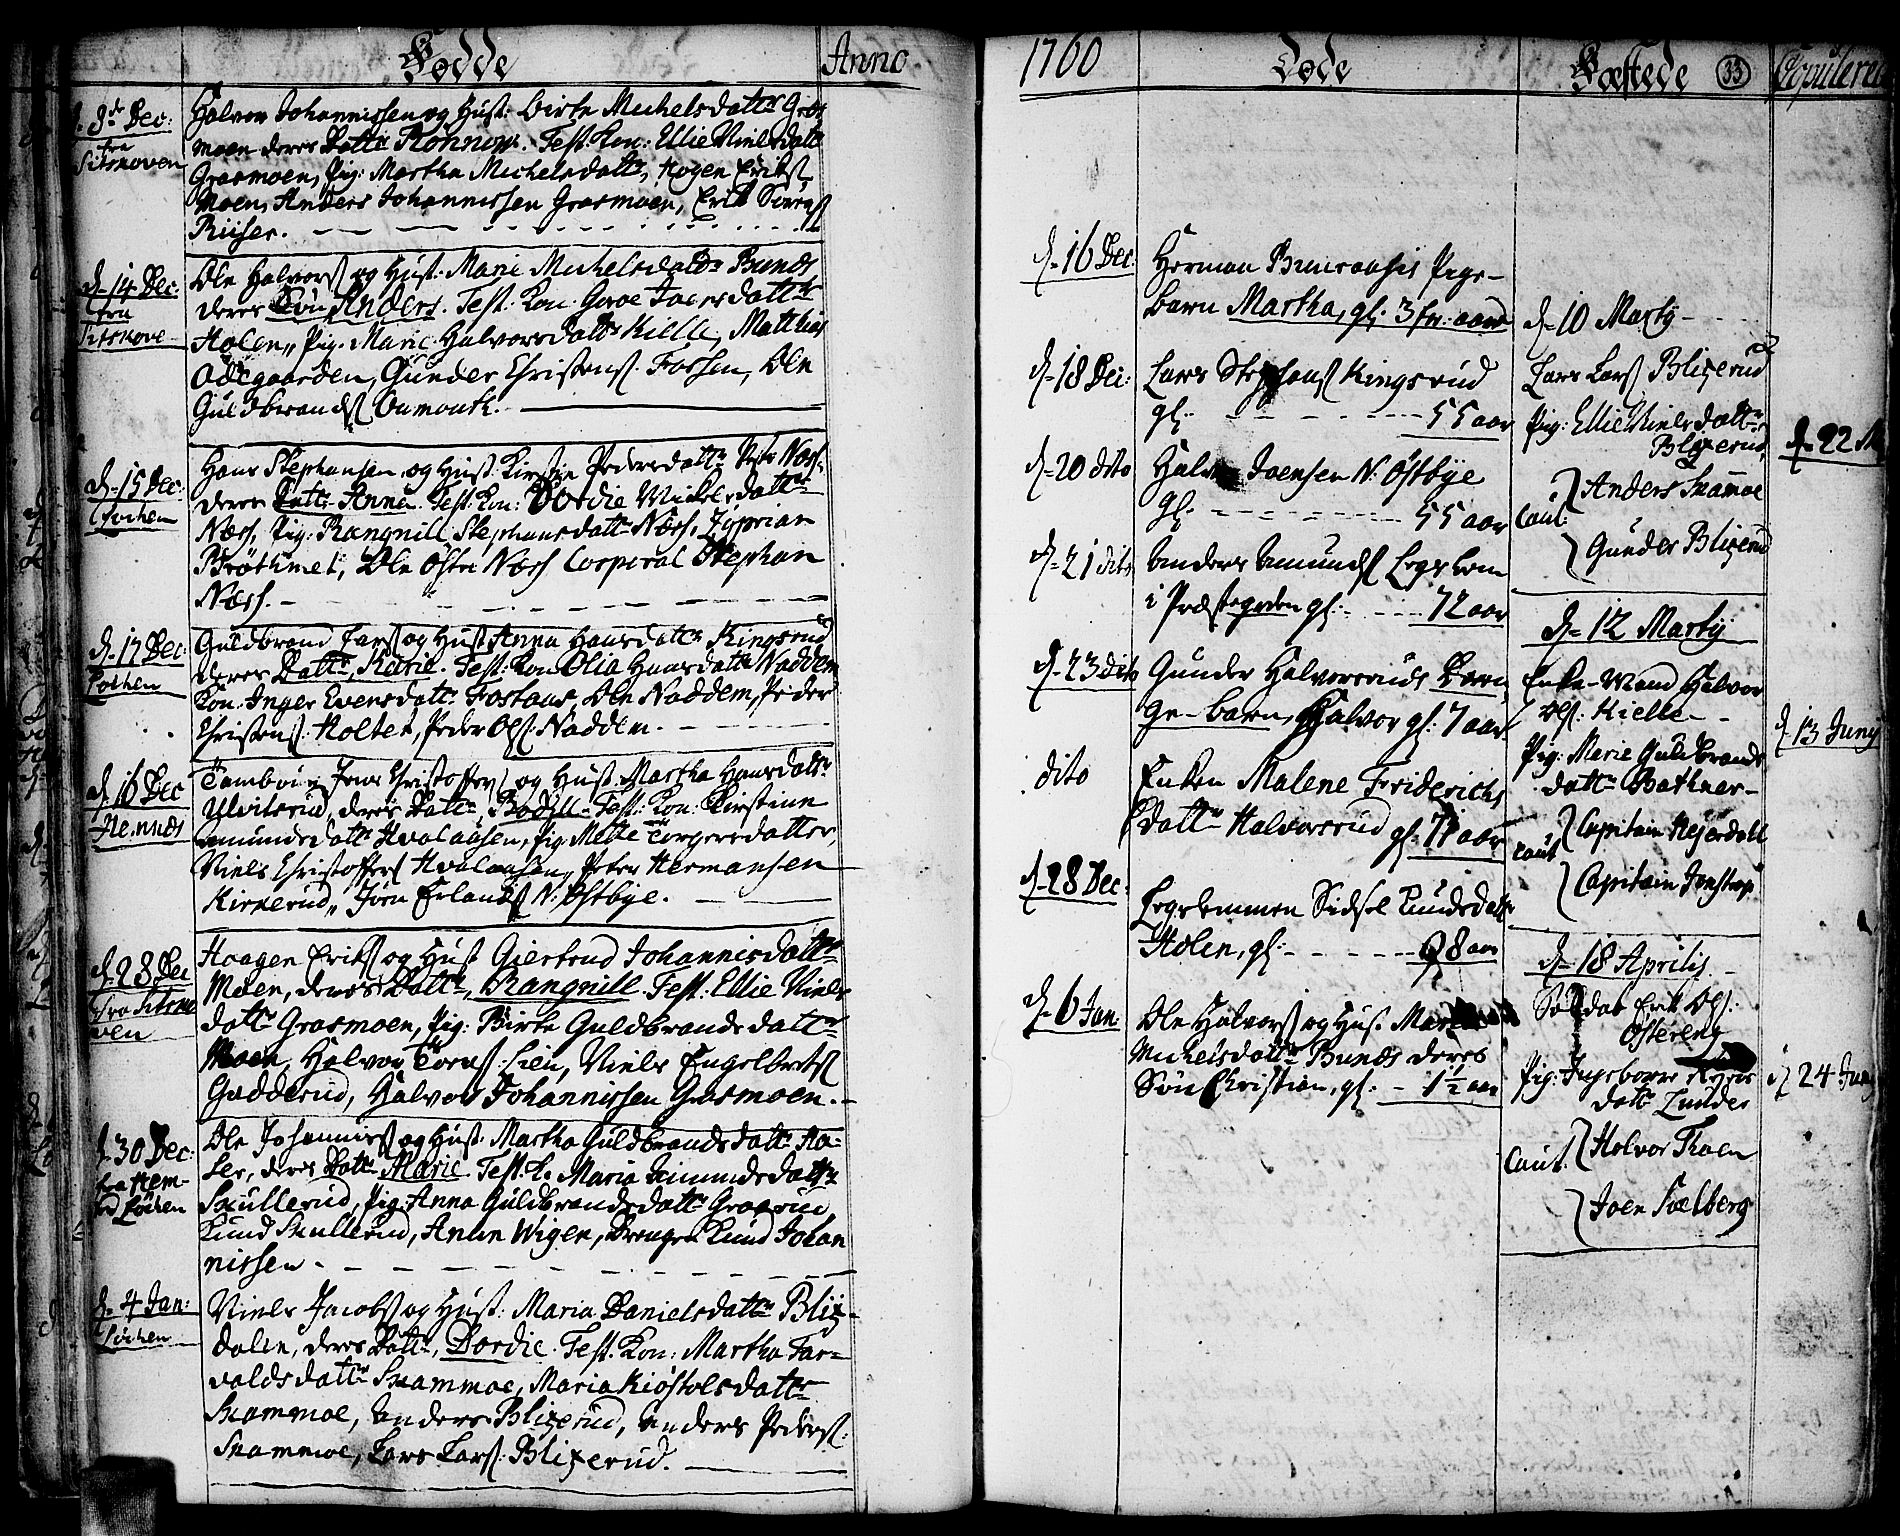 Fødde
Anno
d. 8de Dec:
fra
Sitskoven
Halvor Johannissen og Hust: Birte Michelsdattr Gras
moen deres Dattr Rønnow. Test: Kon: Ellie Nielsdattr
Grasmoen, Pig: Martha Michelsdattr, Hogen Erikss
Moen, Anders Johannissen Grasmoen, Erik Sørenss
Riiser.
d. 14 Dec:
fra
Sitskove
Ole Halvorss og Hust: Marie Michelsdattr Bunds
deres Søn Anders. Test: Kon: Goroe Joensdattr
Holen, Pig. Marie Halvorsdattr Kielle, Matthias
Ødegaarden, Gunder Christenss. Fossen, Ole
Guldbrandss Oumouth.
d. 15 Dec:
Løchen
Hans Stephansen og Hust: Kirstie Pedersdattr Næss
deres Dattr Anna. Test: Kon: Dordie Mickelsdattr
Næss, Pig: Rangnill Stephansdattr Næss, Zyprian
Brøthmet, Ole Østre Næss Corporal Stephan
Næss.
d. 17 Dec:
Løchen
Guldbrand Larss og Hust Anna Hansdattr Kingsrud
deres Dattr Karie. Test: Kon Olia Hansdattr Naddem
Kon: Inger Evensdattr Fostaus, Ole Naddem, Peder
Christenss: Holter, Peder Olss: Naddem.
d. 16 Dec
Hemnæs
Tambour Jens Christofferss og Hust: Martha Hansdattr
Ulvitsrud deres Dattr Bodill Test: Kon: Kirstine
Amundsdattr Hvalausen, Pig. Mette Torgersdatter,
Niels Christofferss Hvalausen, Peter Hermansen
Kirkerud, Jørn Erlandss N: Østbye.
d. 28 Dec
fra Sitsko
ven
Haagen Erikss og Hust Giertrud Johannisdattr
Moen, deres Dattr Rangnill Test: Ellie Niels
dattr Grasmoen, Pig: Birte Guldbrandsdattr
Moen, Halvor Toruss: Lien, Niels Engelbretss
Gudderud, Halvor Johannissen Grasmoen.
d. 30 Dec:
fra Hem-
Løchen
Ole Johanniss og Hust: Martha Guldbrandsdattr Ha-
ler, deres Dattr Marie Test: K. Maria Amundsdattr
Skullerud, Pig: Anna Guldbrandsdattr Graarud
Knud Skullerud, Anun Wiger, Drengen Knud Johan
nissen
d. 4 Jan:
Løchen
Niels Jacobss og Hust: Maria Danielsdattr Blix-
dalen, deres Dattr, Dordie. Test. Kon: Martha Tar-
valdsdattr Skammoe, Maria Kiøstolsdattr
Skammoe, Anders Blixerud, Anders Pederss:
Skammoe, Lars Larss: Blixerud.
1760
Døde
d. 16 Dec:
Herman Pige-
barn Martha, gl. 3 fr: aar
d. 18 Dec:
Lars Stephanss Kingsrud
gl: 55 aar
d. 20 dito
Halvor Joensen N: Østbye
gl: 55 aar
d. 21 dito
Anders Amundss Legslem
i Præstegrden gl: 72 aar
d. 23 dito
Gunder Halvorsruds Barn,
Ge- barn, Halvor gl: 7 aar
dito
Enken Malene Friderichs
Dattr Halvorsrud gl: 71 aar
d. 28 Dec:
Legslemmen Sidsel Knudsdattr
Holen, gl: 98 aar
d. 6 Jan:
Ole Halvorss og Hust Marie
Michelsdattr Bunds deres
Søn Christian, gl: 1½ aar
Fæstede
33
Copulered
d. 10 Marty
Lars Larss Blixerud
Pig: Ellie Nielsdattr
Blixerud
Caut: Anders Skammoe
Gunder Blixerud
d. 22 M
d. 12 Marty
Enke-Mand Halvor
Olss: Kielle
Pig: Marie Guldbrands
dattr Bothner
Caut Capitain Hejerdahl
Capitain Jenstrop
d. 13 Juny
d. 18 Aprilis
Soldat Erik Olss:
Østereng
Pig: Ingeborre
dattr Lunder
Caut. Halvor Thoen
Joen Sælberg
d. 24 Juny